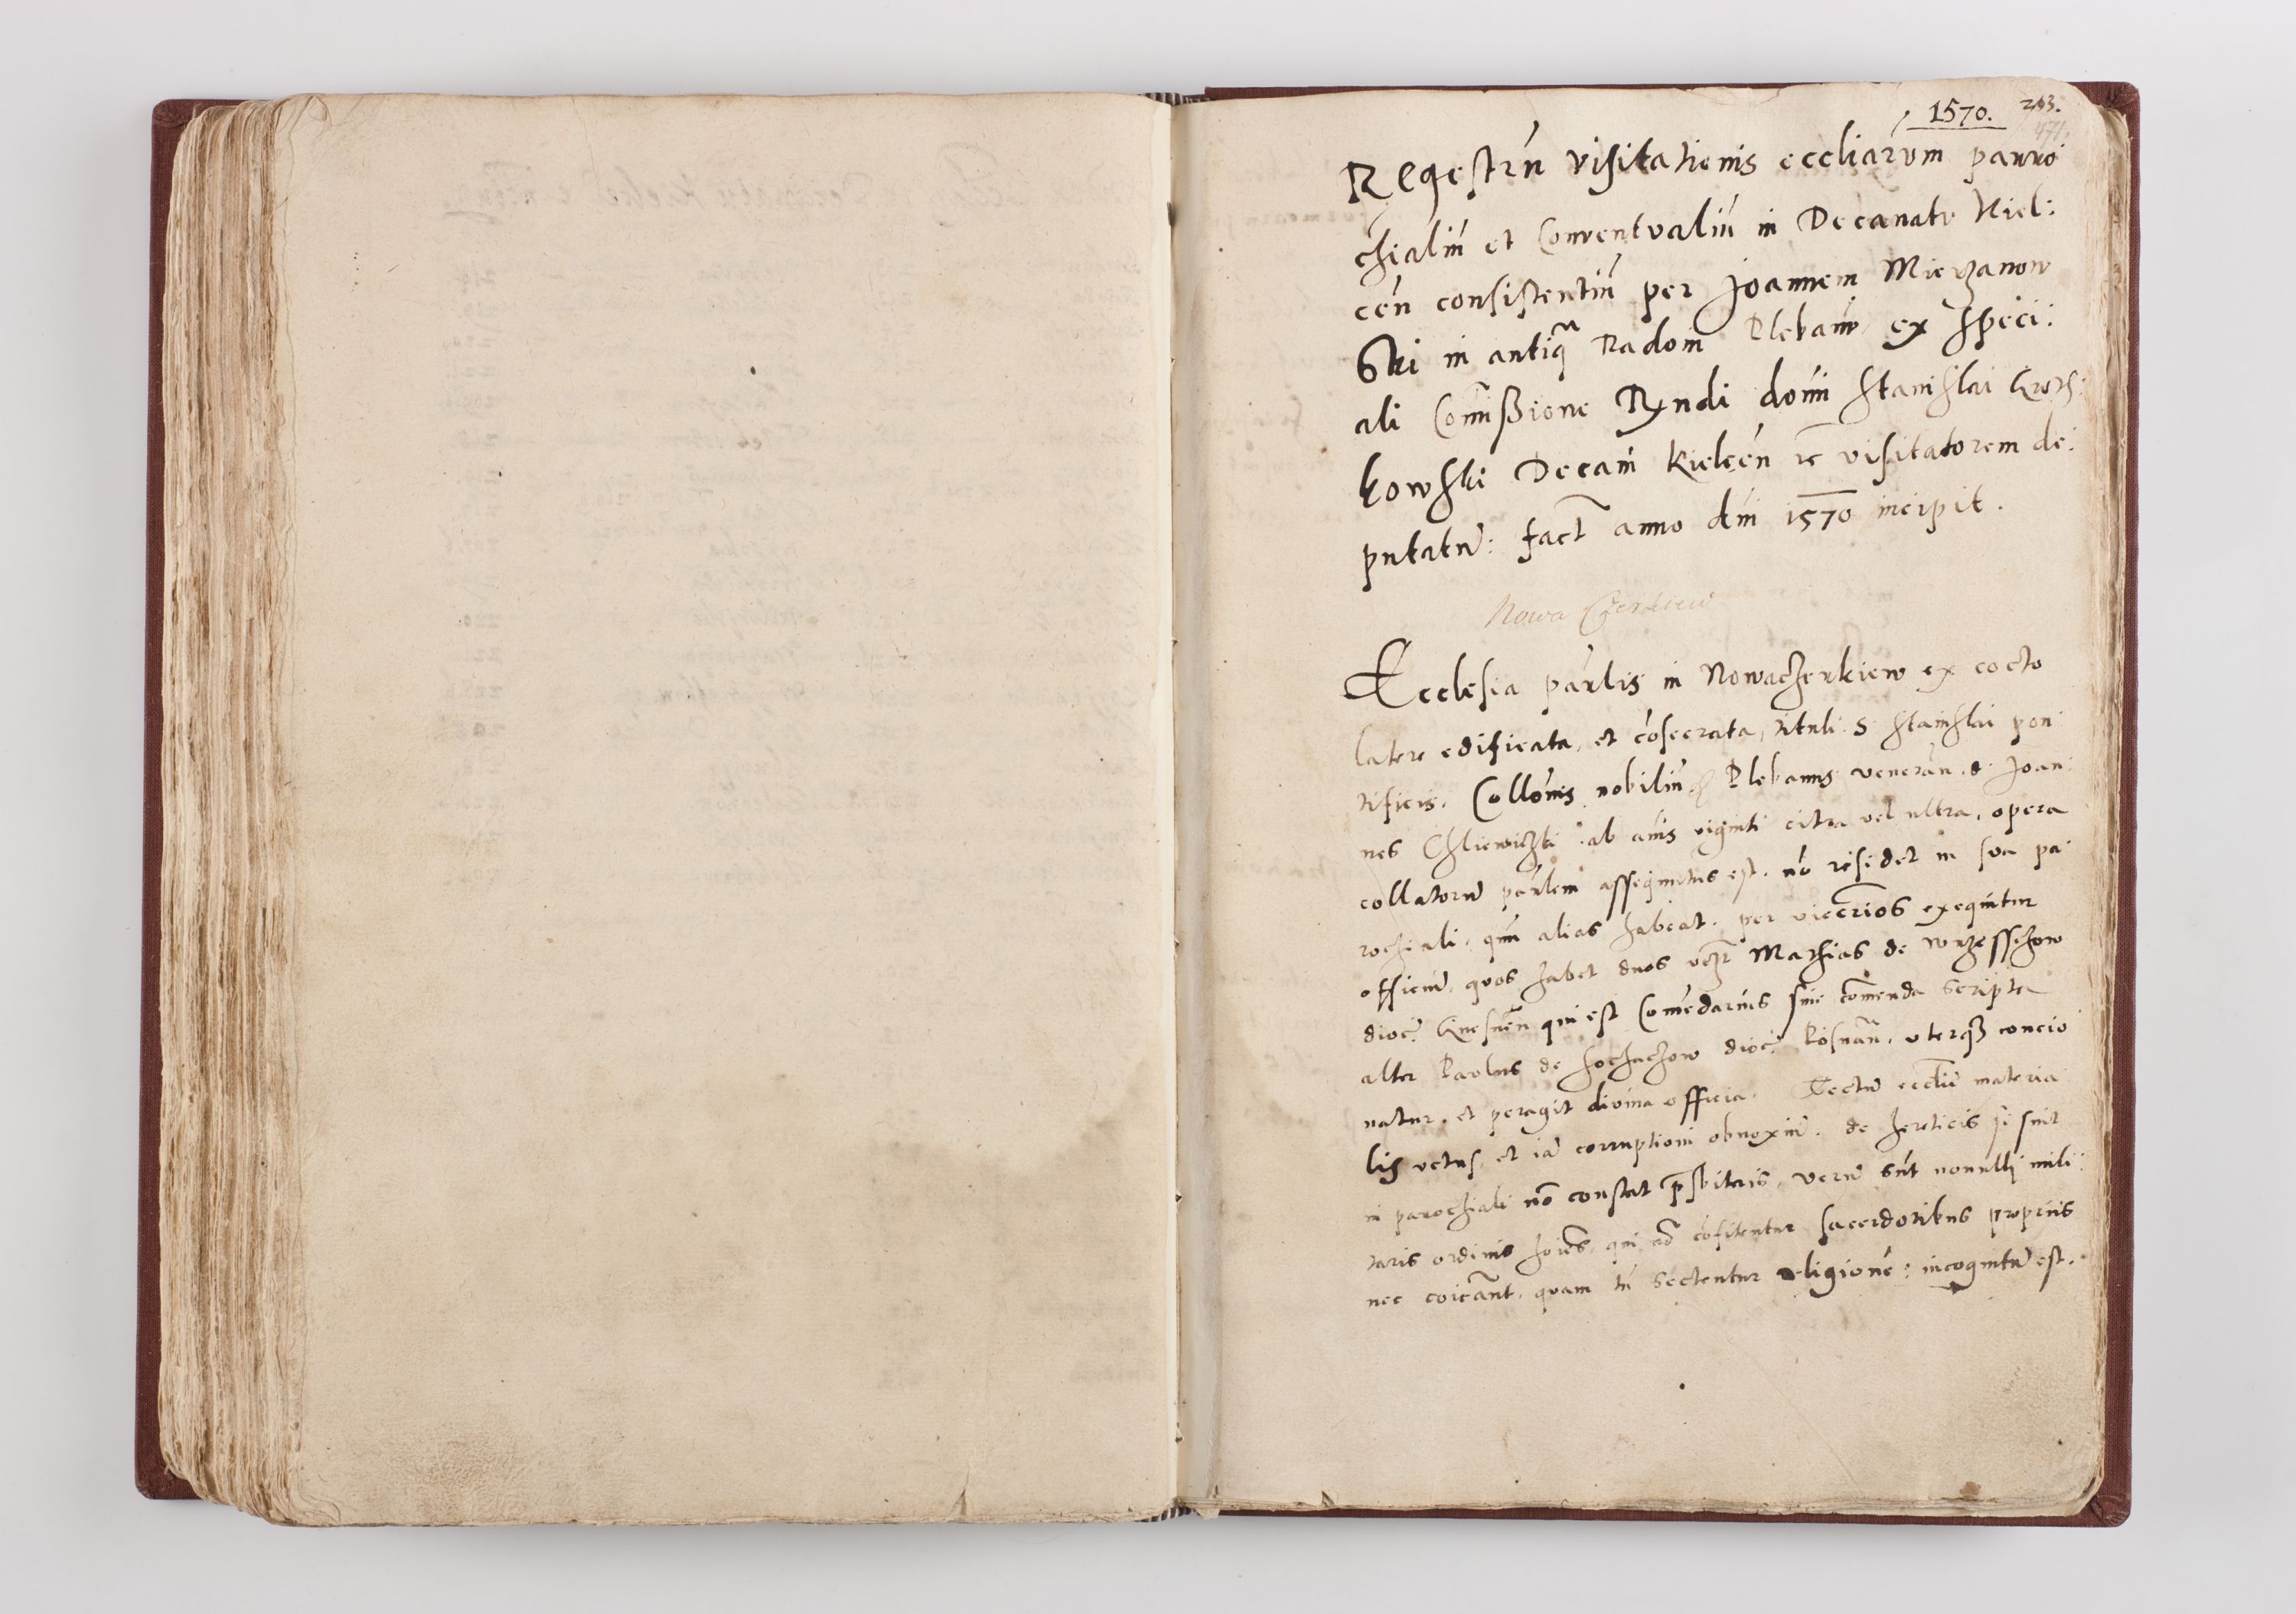 1570. 243.
471.
Regestrū visitationis eccliarum parro
chialiū et Conventvaliū in Decanatv Kiel:
cēn consistentiū per Joannem Mieczanow
Ski in antiq̄ Radom Plebanū ex speci:
ali Comīssione Rndi domī Stanislai Kroz:
kowski Decani Kielcēn ē visitatorem de:
putatū: fact̄ anno dni 1570 incipit.
Nowa Cerkiew
Ecclesia parlis in Nowacherkiew ex cocto
latere edificata, et cōsecrata, tituli S Stanislai pon
tificis. Collōnis nobiliū Plebanus veneran. d. Joan:
nes Chliewiczki ab anīs viginti citra vel ultra, opera
collatorū parlem assequutus est. nō residet in sua pa:
rochiali, qm̄ alias habeat. per vicerios exequitur
officiū, quos habet duos vez Mathias de Wrzesschow
dioc: Gnesnēn qui est Comēdarius sine comenda scripta
alter Paulus de Sochachow dioc: Posnān. uterq3 concio
natur, et peragit divina officia. Tectū ecclie materia
lis vetus, et iā corruptioni obnoxiū. de hereticis si sint
in parochiali nō constat p̄sbiteris, verū sūt nonulli mili:
taris ordinis hoīes, qui nō cōfitentur sacerdotibus propriis
nec coicānt, quam tn̄ sectentur religionē: incognitū est.